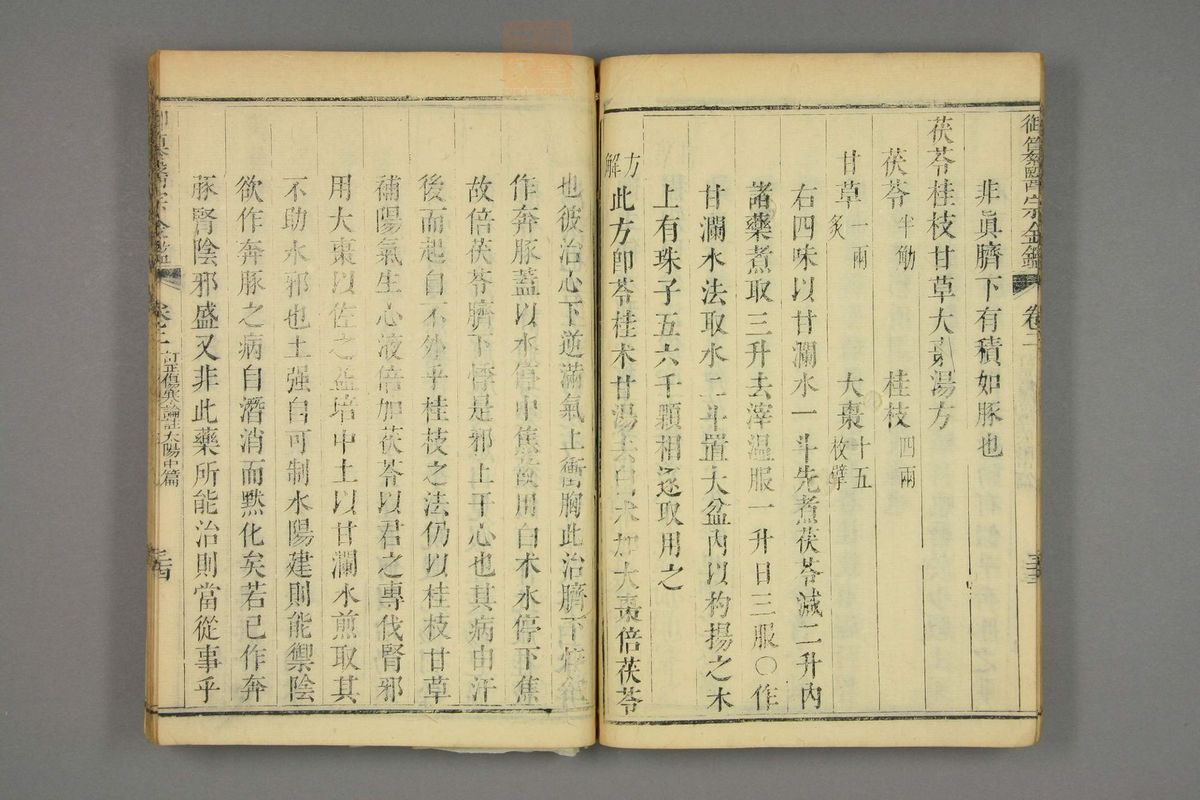 御纂醫宗金鑑 卷二
非眞臍下有積如豚也
茯苓桂枝甘草大棗湯方
茯苓半觔 桂枝四兩
甘草一兩炙 大棗十五枚擘
右四味以甘瀾水一斗先煮茯苓減二升內
諸藥煮取三升去滓溫服一升日三服○作
甘瀾水法取水二斗置大盆內以杓揚之水
上有珠子五六千顆相逐取用之
方解此方卽苓桂术甘湯去白术加大棗倍茯苓
也彼治心下逆滿氣上衝胸此治臍下悸欲
作奔豚蓋以水停中焦故用白术水停下焦
故倍茯苓臍下悸是邪上干心也其病由汗
後而起自不外乎桂枝之法仍以桂枝甘草
補陽氣生心液倍加茯苓以君之專伐腎邪
用大棗以佐之益培中土以甘瀾水煎取其
不助水邪也土强自可制水陽建則能禦陰
欲作奔豚之病自潛消而默化矣若已作奔
豚腎陰邪盛又非此藥所能治則當從事乎
卷二 訂正傷寒論註太陽中篇 三十四